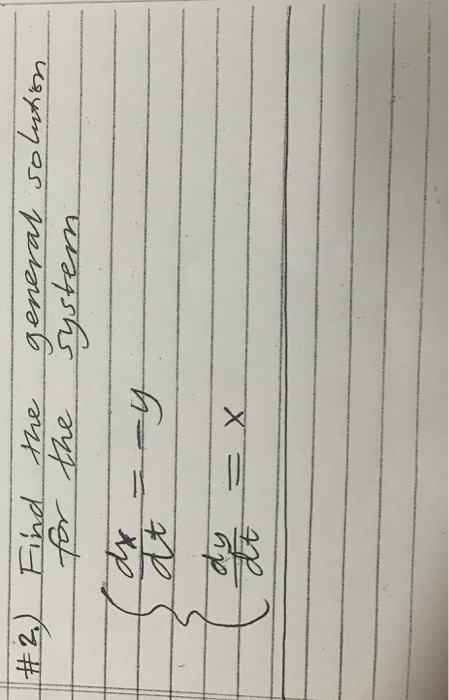 #2.) Find the general solution
for the system
{ dx/dt = -y
dy/dt = x